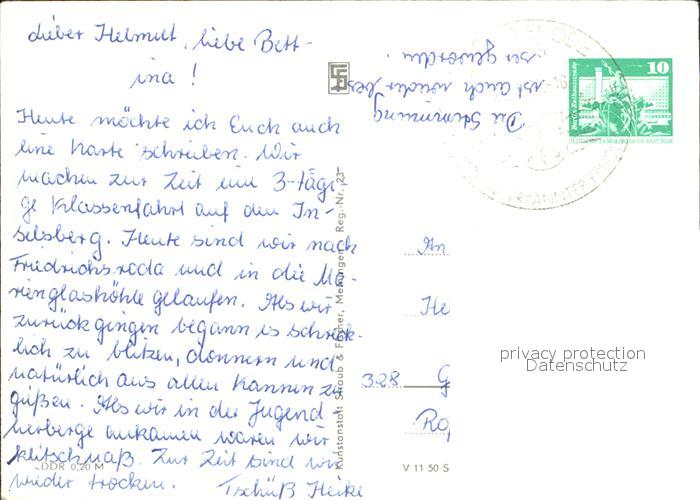 Lieber Helmut, liebe Bett-
ina!
Heute möchte ich Euch auch
eine Karte schreiben. Wir
machen zur Zeit eine 3-tägi-
ge Klassenfahrt auf den In-
selsberg. Heute sind wir nach
Friedrichsroda und in die Ma-
rienglashöhle gelaufen. Als wir
zurückgingen begann es schreck-
lich zu blitzen, donnern und
natürlich aus allen Kannen zu
gießen. Als wir in der Jugend
herberge ankamen waren wir
klitschnaß. Zur Zeit sind wir
wieder trocken. Tschüß Heike
Die Stimmung
ist auch wieder bes
ser geworden.
DDR 0,20 M
Kunstanstalt Straub & Fischer, Meiningen Reg.-Nr. 23
V 11 50 S
10
DEUTSCHE DEMOKRATISCHE REPUBLIK
An
He
328 G
Ro
privacy protection
Datenschutz